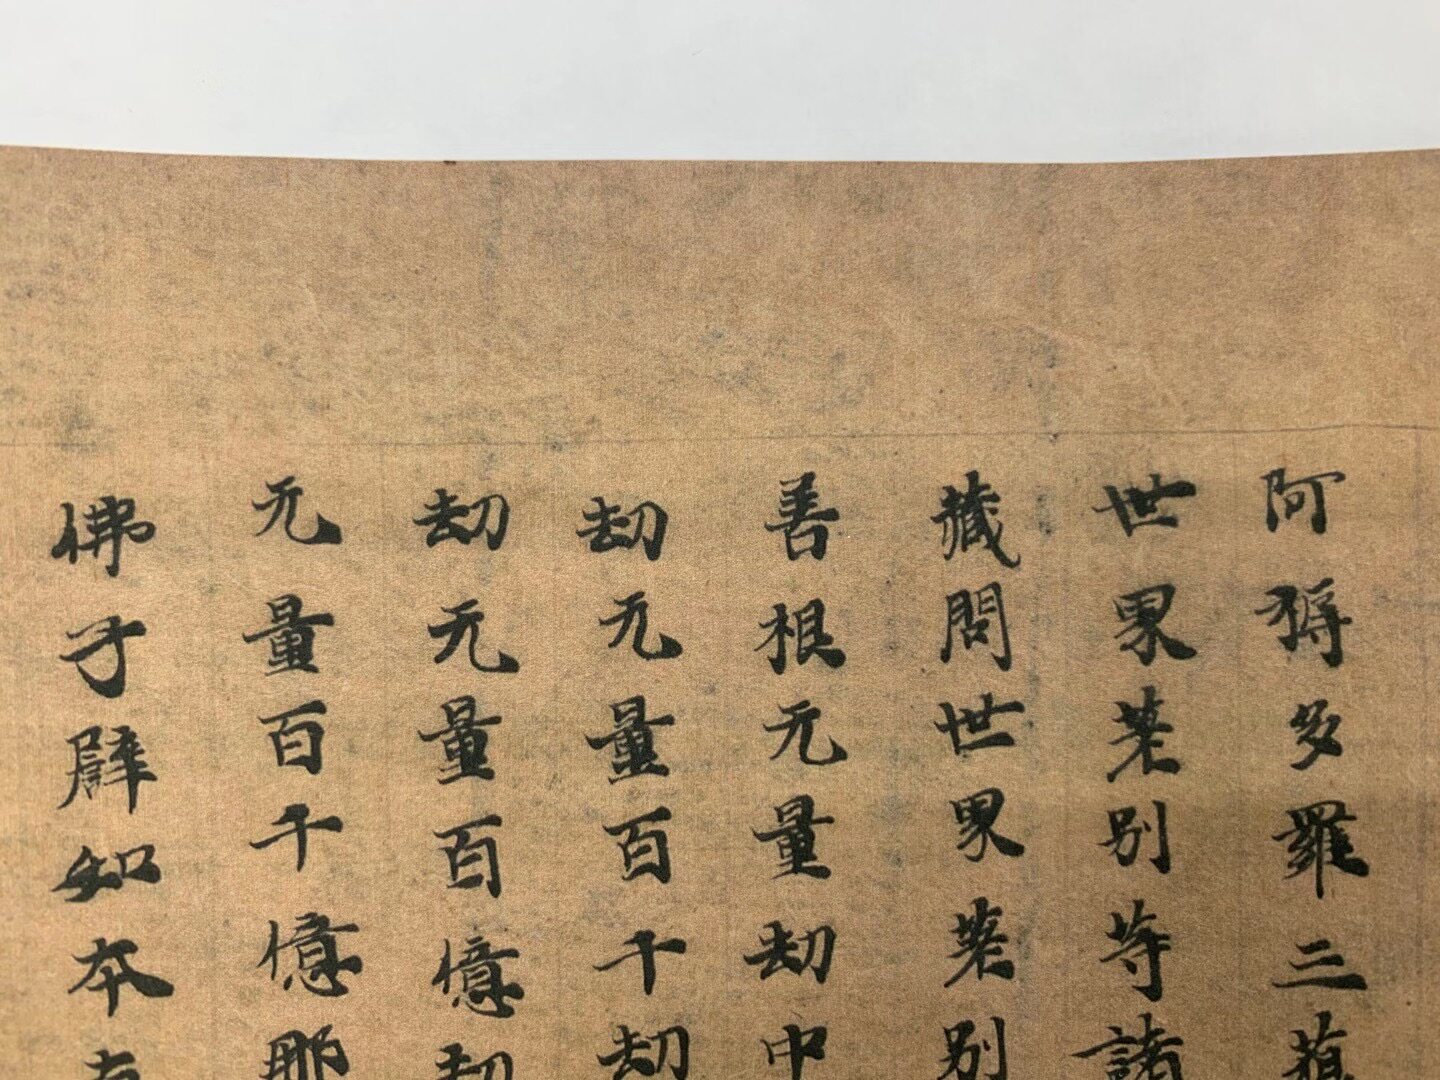 阿耨多羅三藐
世界差別等諸
藏問世界差別
善根无量劫中
劫无量百千劫
劫无量百億劫
无量百千億那
佛子譬如本有